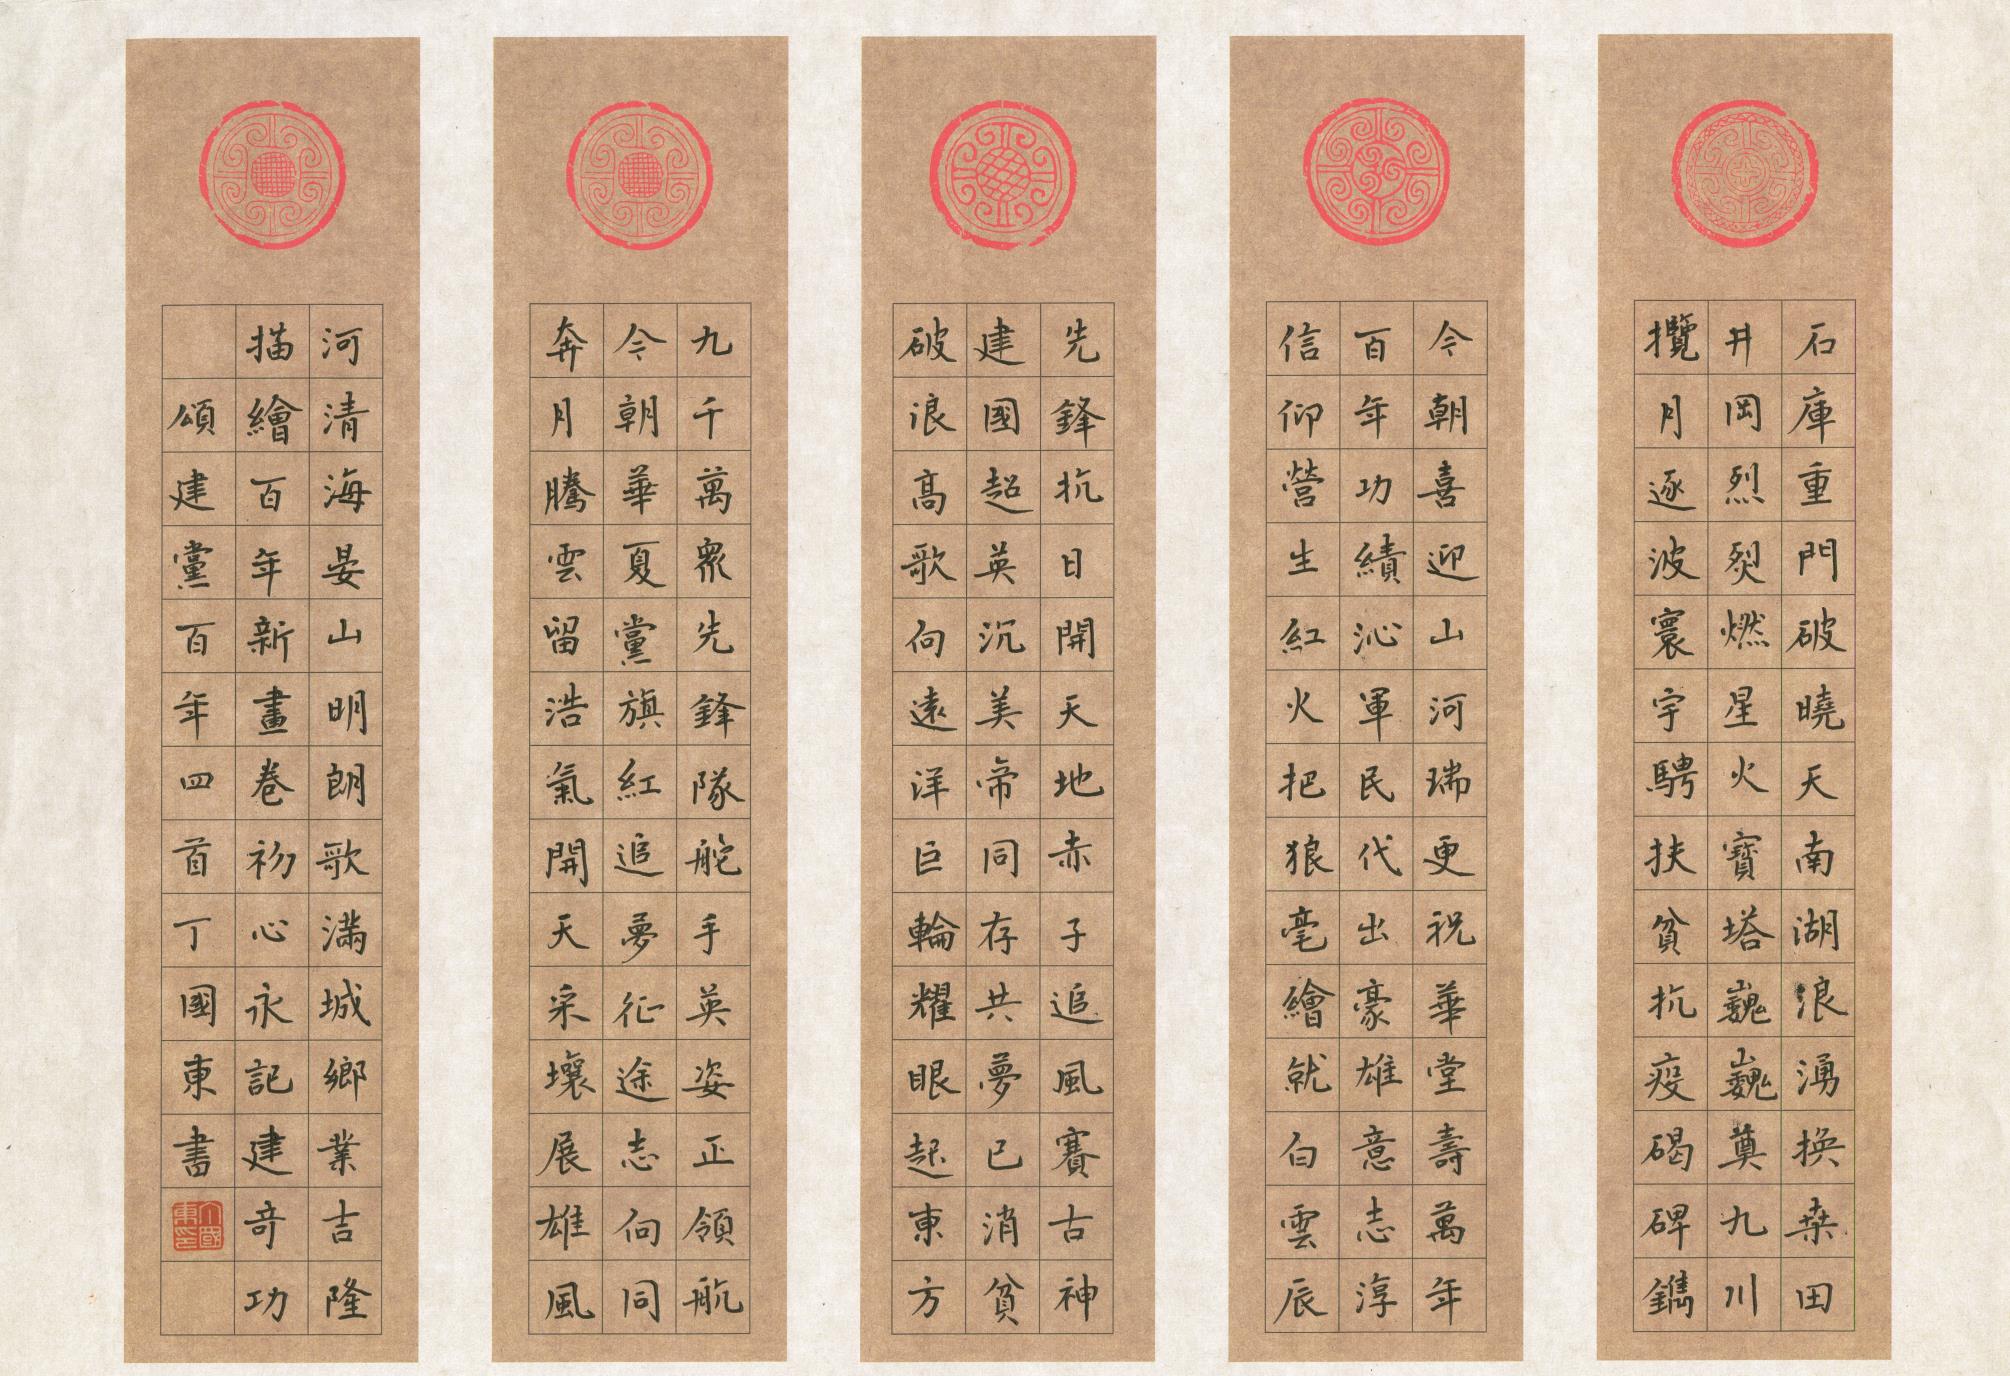 石庫重門破曉天南湖浪湧換桒田
井岡烈焛燃星火寶塔巍巍奠九川
攬月逐波寰宇騁扶貧抗疫碣碑鐫
今朝喜迎山河瑞更祝華堂壽萬年
百年功績沁軍民代出豪雄意志淳
信仰營生紅火把狼毫繪就白雲辰
先鋒抗日開天地赤子追風賽古神
建國超英沉美帝同存共夢已消貧
破浪高歌向遠洋巨輪耀眼起東方
九千萬眾先鋒隊舵手英姿正領航
今朝華夏黨旗紅追夢征途志向同
奔月騰雲留浩氣開天采壤展雄風
河清海晏山明朗歌滿城鄉業吉隆
描繪百年新畫卷初心永記建奇功
頌建黨百年四首丁國東書
丁國東印